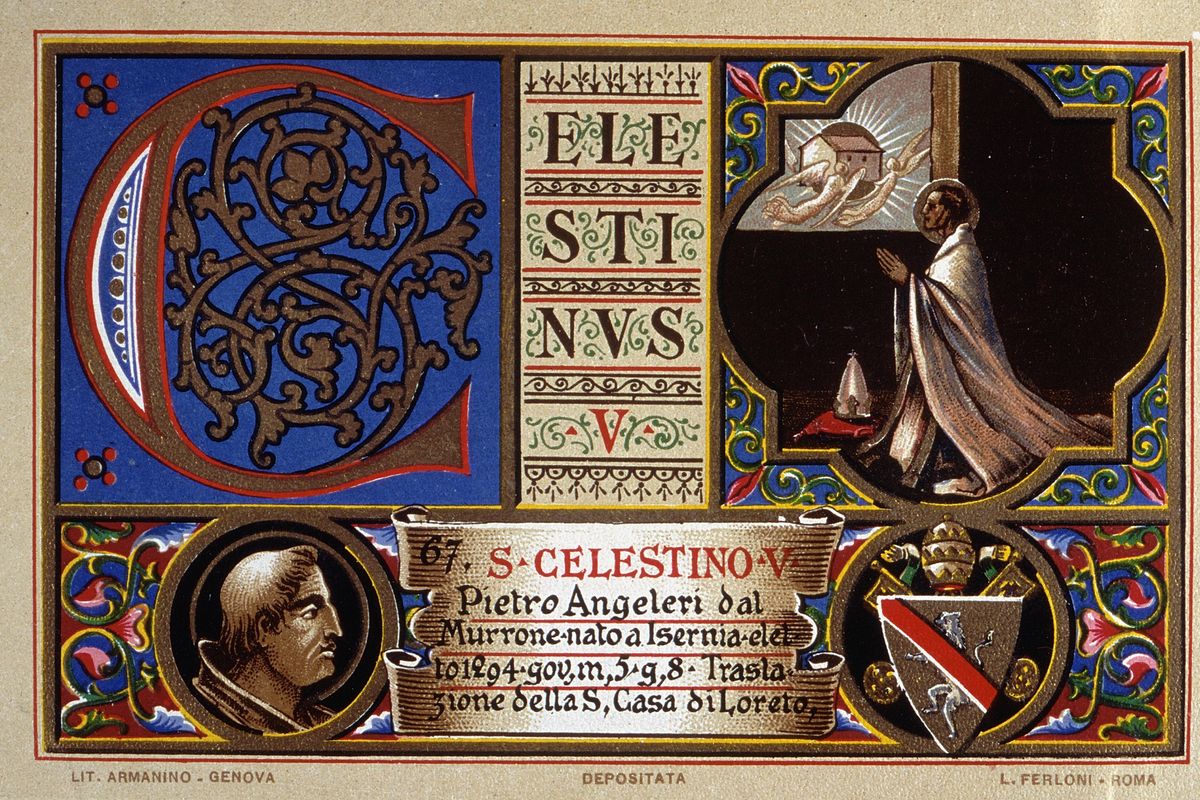 C
ELE
STI
NVS
V
67. S·CELESTINO·V·
Pietro Angeleri dal
Murrone·nato a Isernia·elet
to 1294·gov,m,5·g,8· Trasla
zione della S, Casa di Loreto,
LIT. ARMANINO - GENOVA
DEPOSITATA
L. FERLONI - ROMA